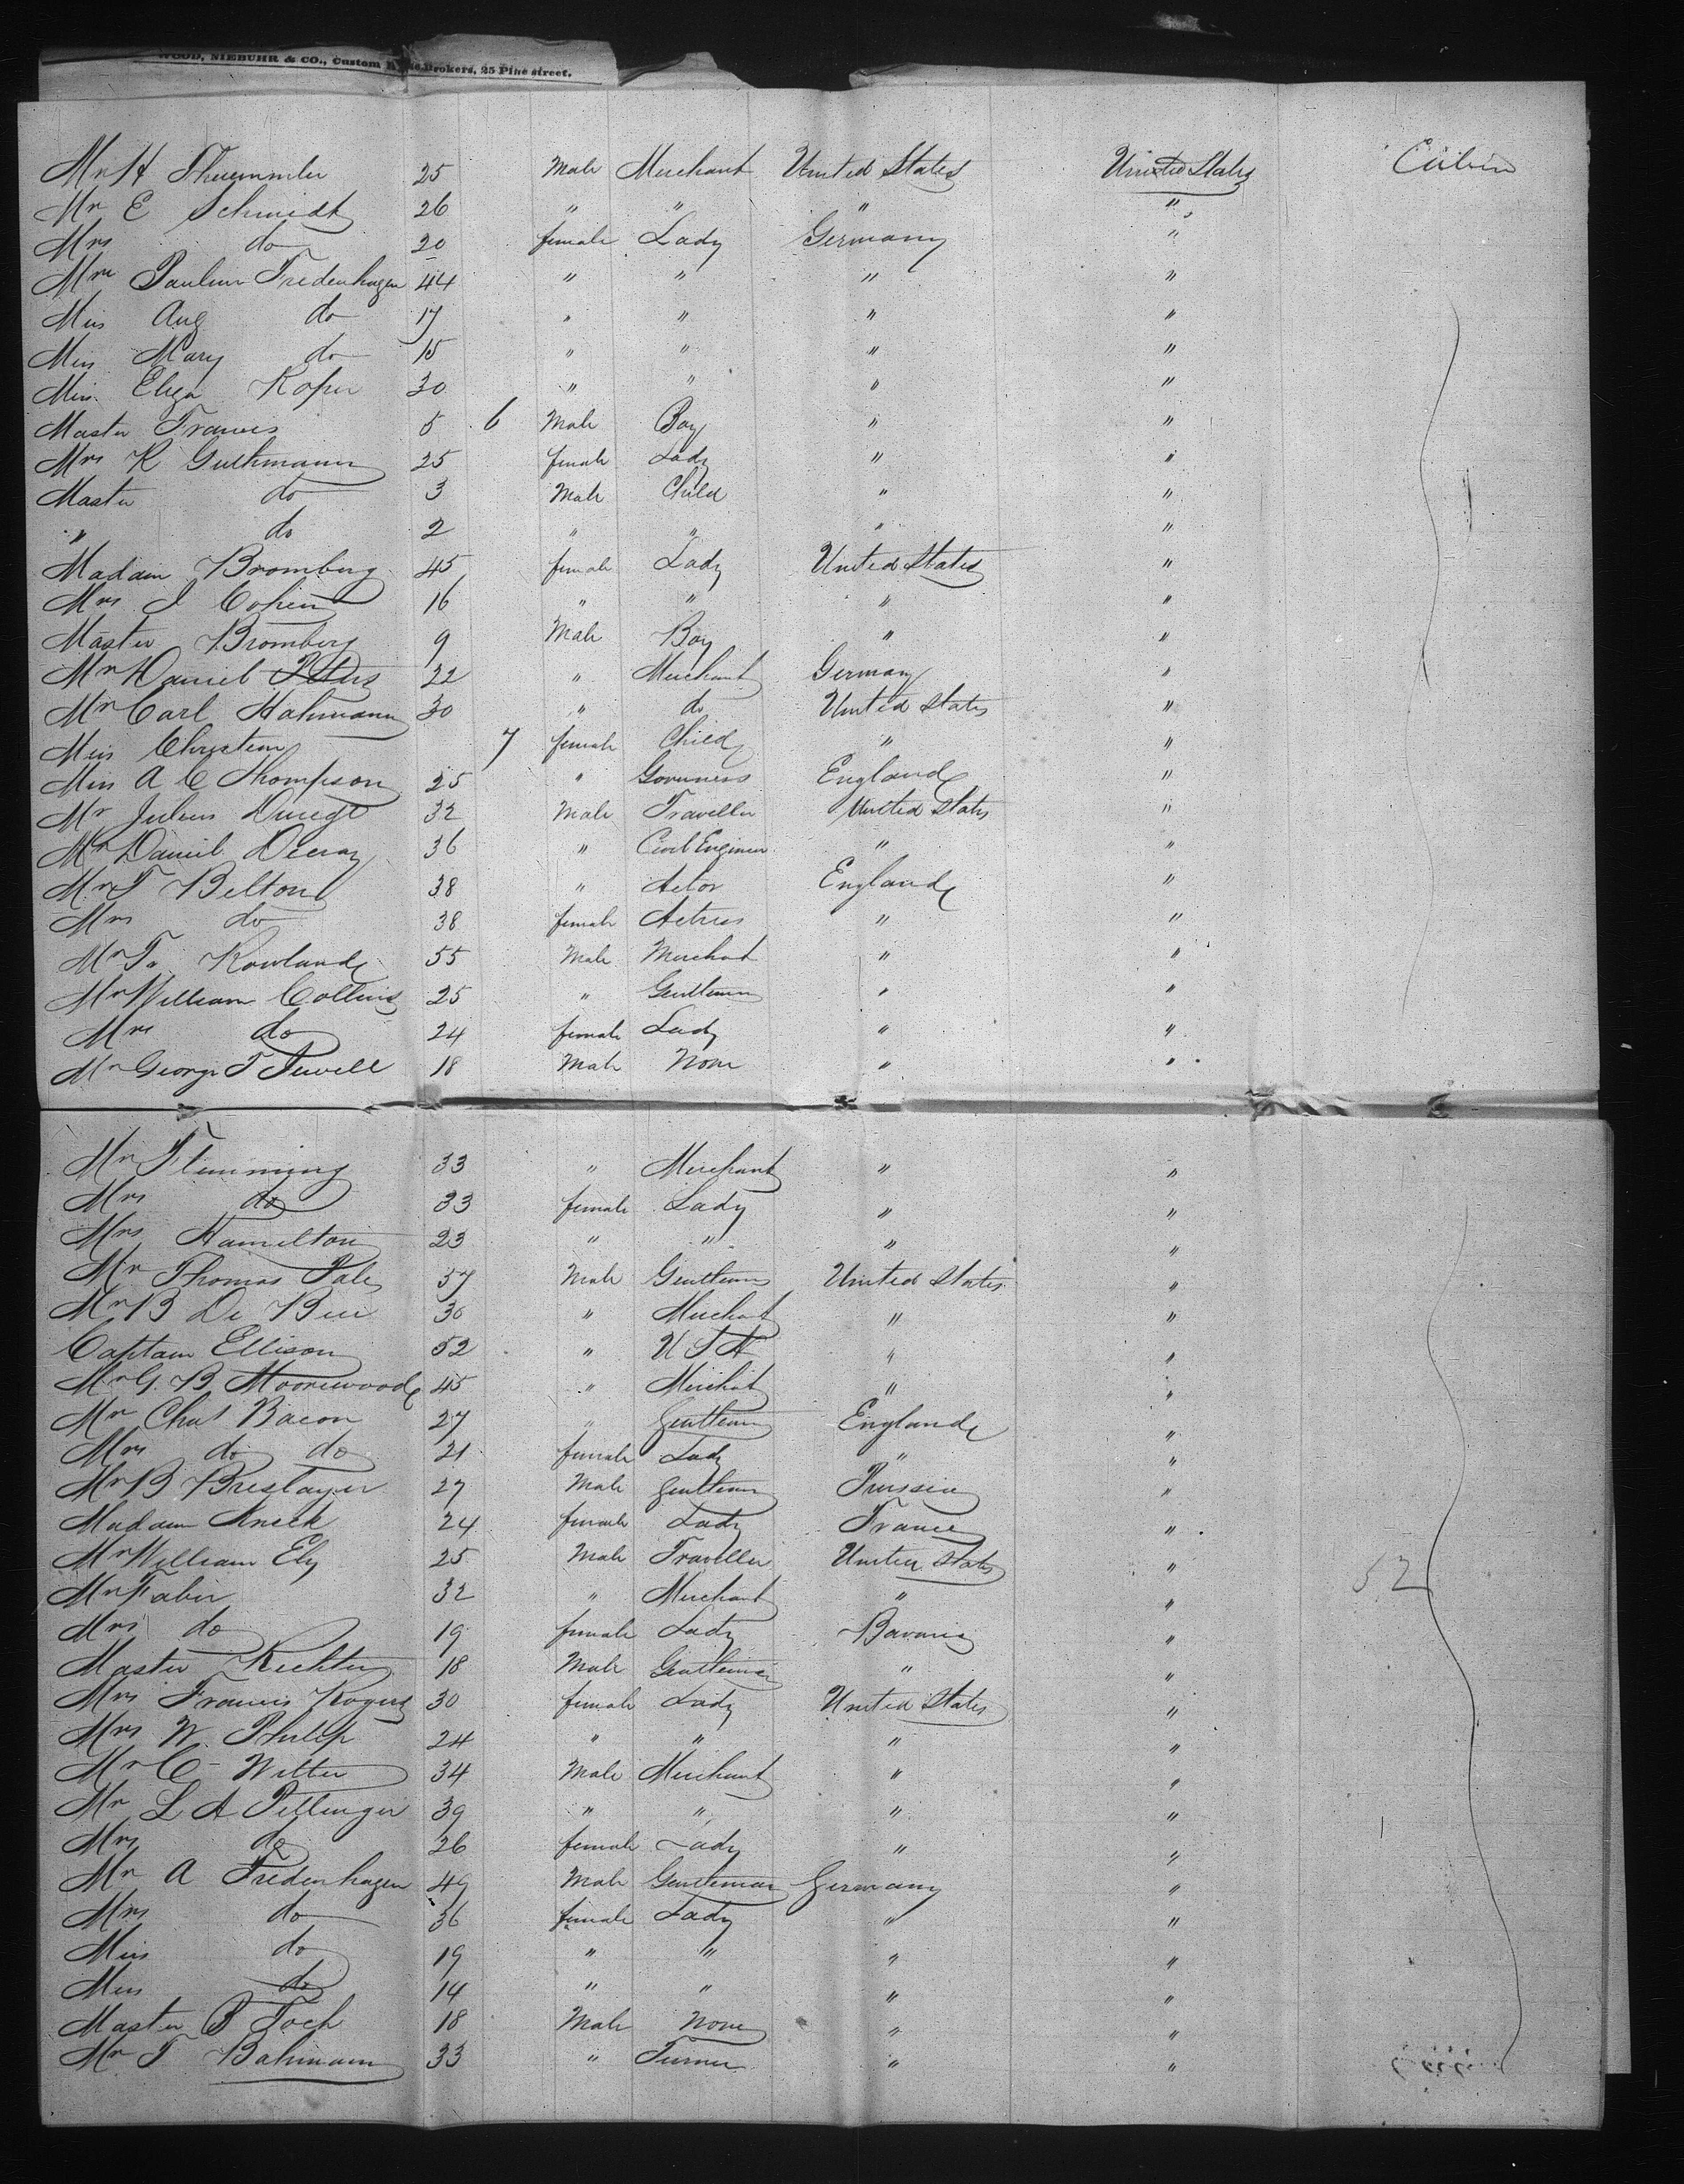 WOOD, NIEBUHR & CO., Custom Brokers, 25 Pine street.
Mr H Thuemmler 25 Male Merchant United States United States Cabin
Mr E Schmidt 26 " " " "
Mrs do 20 female Lady Germany "
Mrs Paulina Fredenhagen 44 " " " "
Miss Aug do 17 " " " "
Miss Mary do 15 " " " "
Miss Eliza Roper 30 " " " "
Master Francis 5 6 Male Boy " "
Mrs R Guthmann 25 female Lady " "
Master do 3 Male Child " "
" do 2 " " " "
Madam Bromberg 45 female Lady United States "
Mrs J Cohen 16 " " " "
Master Bromberg 9 Male Boy " "
Mr Daniel Peters 22 " Merchant Germany "
Mr Carl Hahmann 30 " do United States "
Miss Christein 7 female Child " "
Miss A C Thompson 25 " Governess England "
Mr Julius 32 Male Traveller United States "
Mr Daniel 36 " Civil Engineer " "
Mr F Belton 38 " Actor England "
Mrs do 38 female Actress " "
Mr T. Rowland 55 Male Merchant " "
Mr William Collins 25 " Gentleman " "
Mrs do 24 female Lady " "
Mr George T Jewell 18 Male None " "
Mr Flemming 33 " Merchant " "
Mrs do 33 female Lady " "
Mrs Hamilton 23 " " " "
Mr Thomas 57 Male Gentleman United States "
Mr B De 30 " Merchant " "
Captain Ellison 52 " U S A " "
Mr G. B Moorewood 45 " Merchant " "
Mr Chas Bacon 27 " Gentleman England "
Mrs do do 21 female Lady " "
Mr B Breslayer 27 Male Gentleman Prussia "
Madam Kneck 24 female Lady France "
Mr William Ely 25 Male Traveller United States " 52
Mr Faber 32 " Merchant " "
Mrs do 19 female Lady Bavaria "
Master Richter 18 Male Gentleman " "
Mrs Francis Rogers 30 female Lady United States "
Mrs W. Philip 24 " " " "
Mr C Witter 34 Male Merchant " "
Mr L A Pillinger 39 " " " "
Mrs do 26 female Lady " "
Mr A Fredenhagen 49 Male Gentleman Germany "
Mrs do 36 female Lady " "
Miss do 19 " " " "
Miss do 14 " " " "
Master B Toch 18 Male None " "
Mr F Bahmann 33 " Turner " "